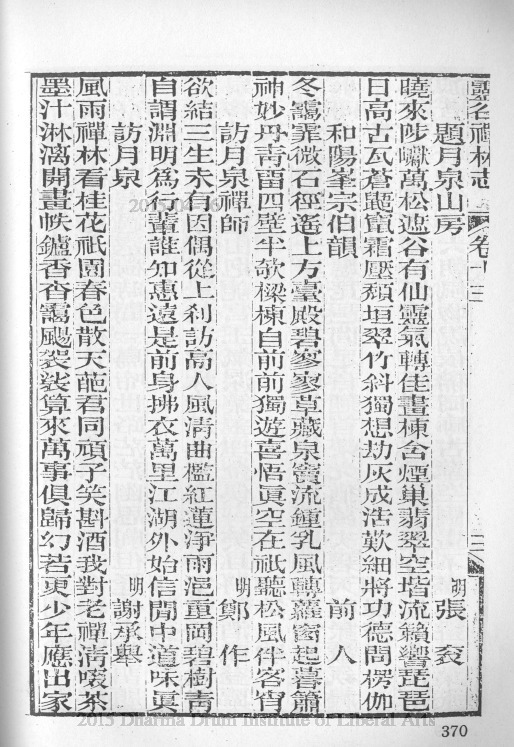 靈谷禪林志 卷十三 二
題月泉山房 明 張袞
曉來陟巘萬松遮谷有仙靈氣轉佳畫棟含煙巢翡翠空堦流籟響琵琶
日高古瓦蒼鼯竄霜壓頹垣翠竹斜獨想劫灰成浩歎細將功德問楞伽
和陽峯宗伯韻 前人
冬靄霏微石徑遙上方臺殿碧寥寥草藏泉竇流鍾乳風轉蘿窗起暮簫
神妙丹靑留四壁半欹樑棟自前朝獨遊喜悟眞空在祇聽松風伴客宵
訪月泉禪師 明 鄭作
欲結三生未有因偶從上刹訪高人風淸曲檻紅蓮淨雨浥重岡碧樹靑
自謂淵明爲行輩誰知惠遠是前身拂衣萬里江湖外始信閒中道味眞
訪月泉 明 謝承舉
風雨禪林看桂花祇園春色散天葩君同頑子笑斟酒我對老禪淸啜茶
墨汁淋漓開畫帙鑪香杳靄颺袈裟算來萬事俱歸幻若更少年應出家
2015 Dharma Drum Institute of Liberal Arts
370